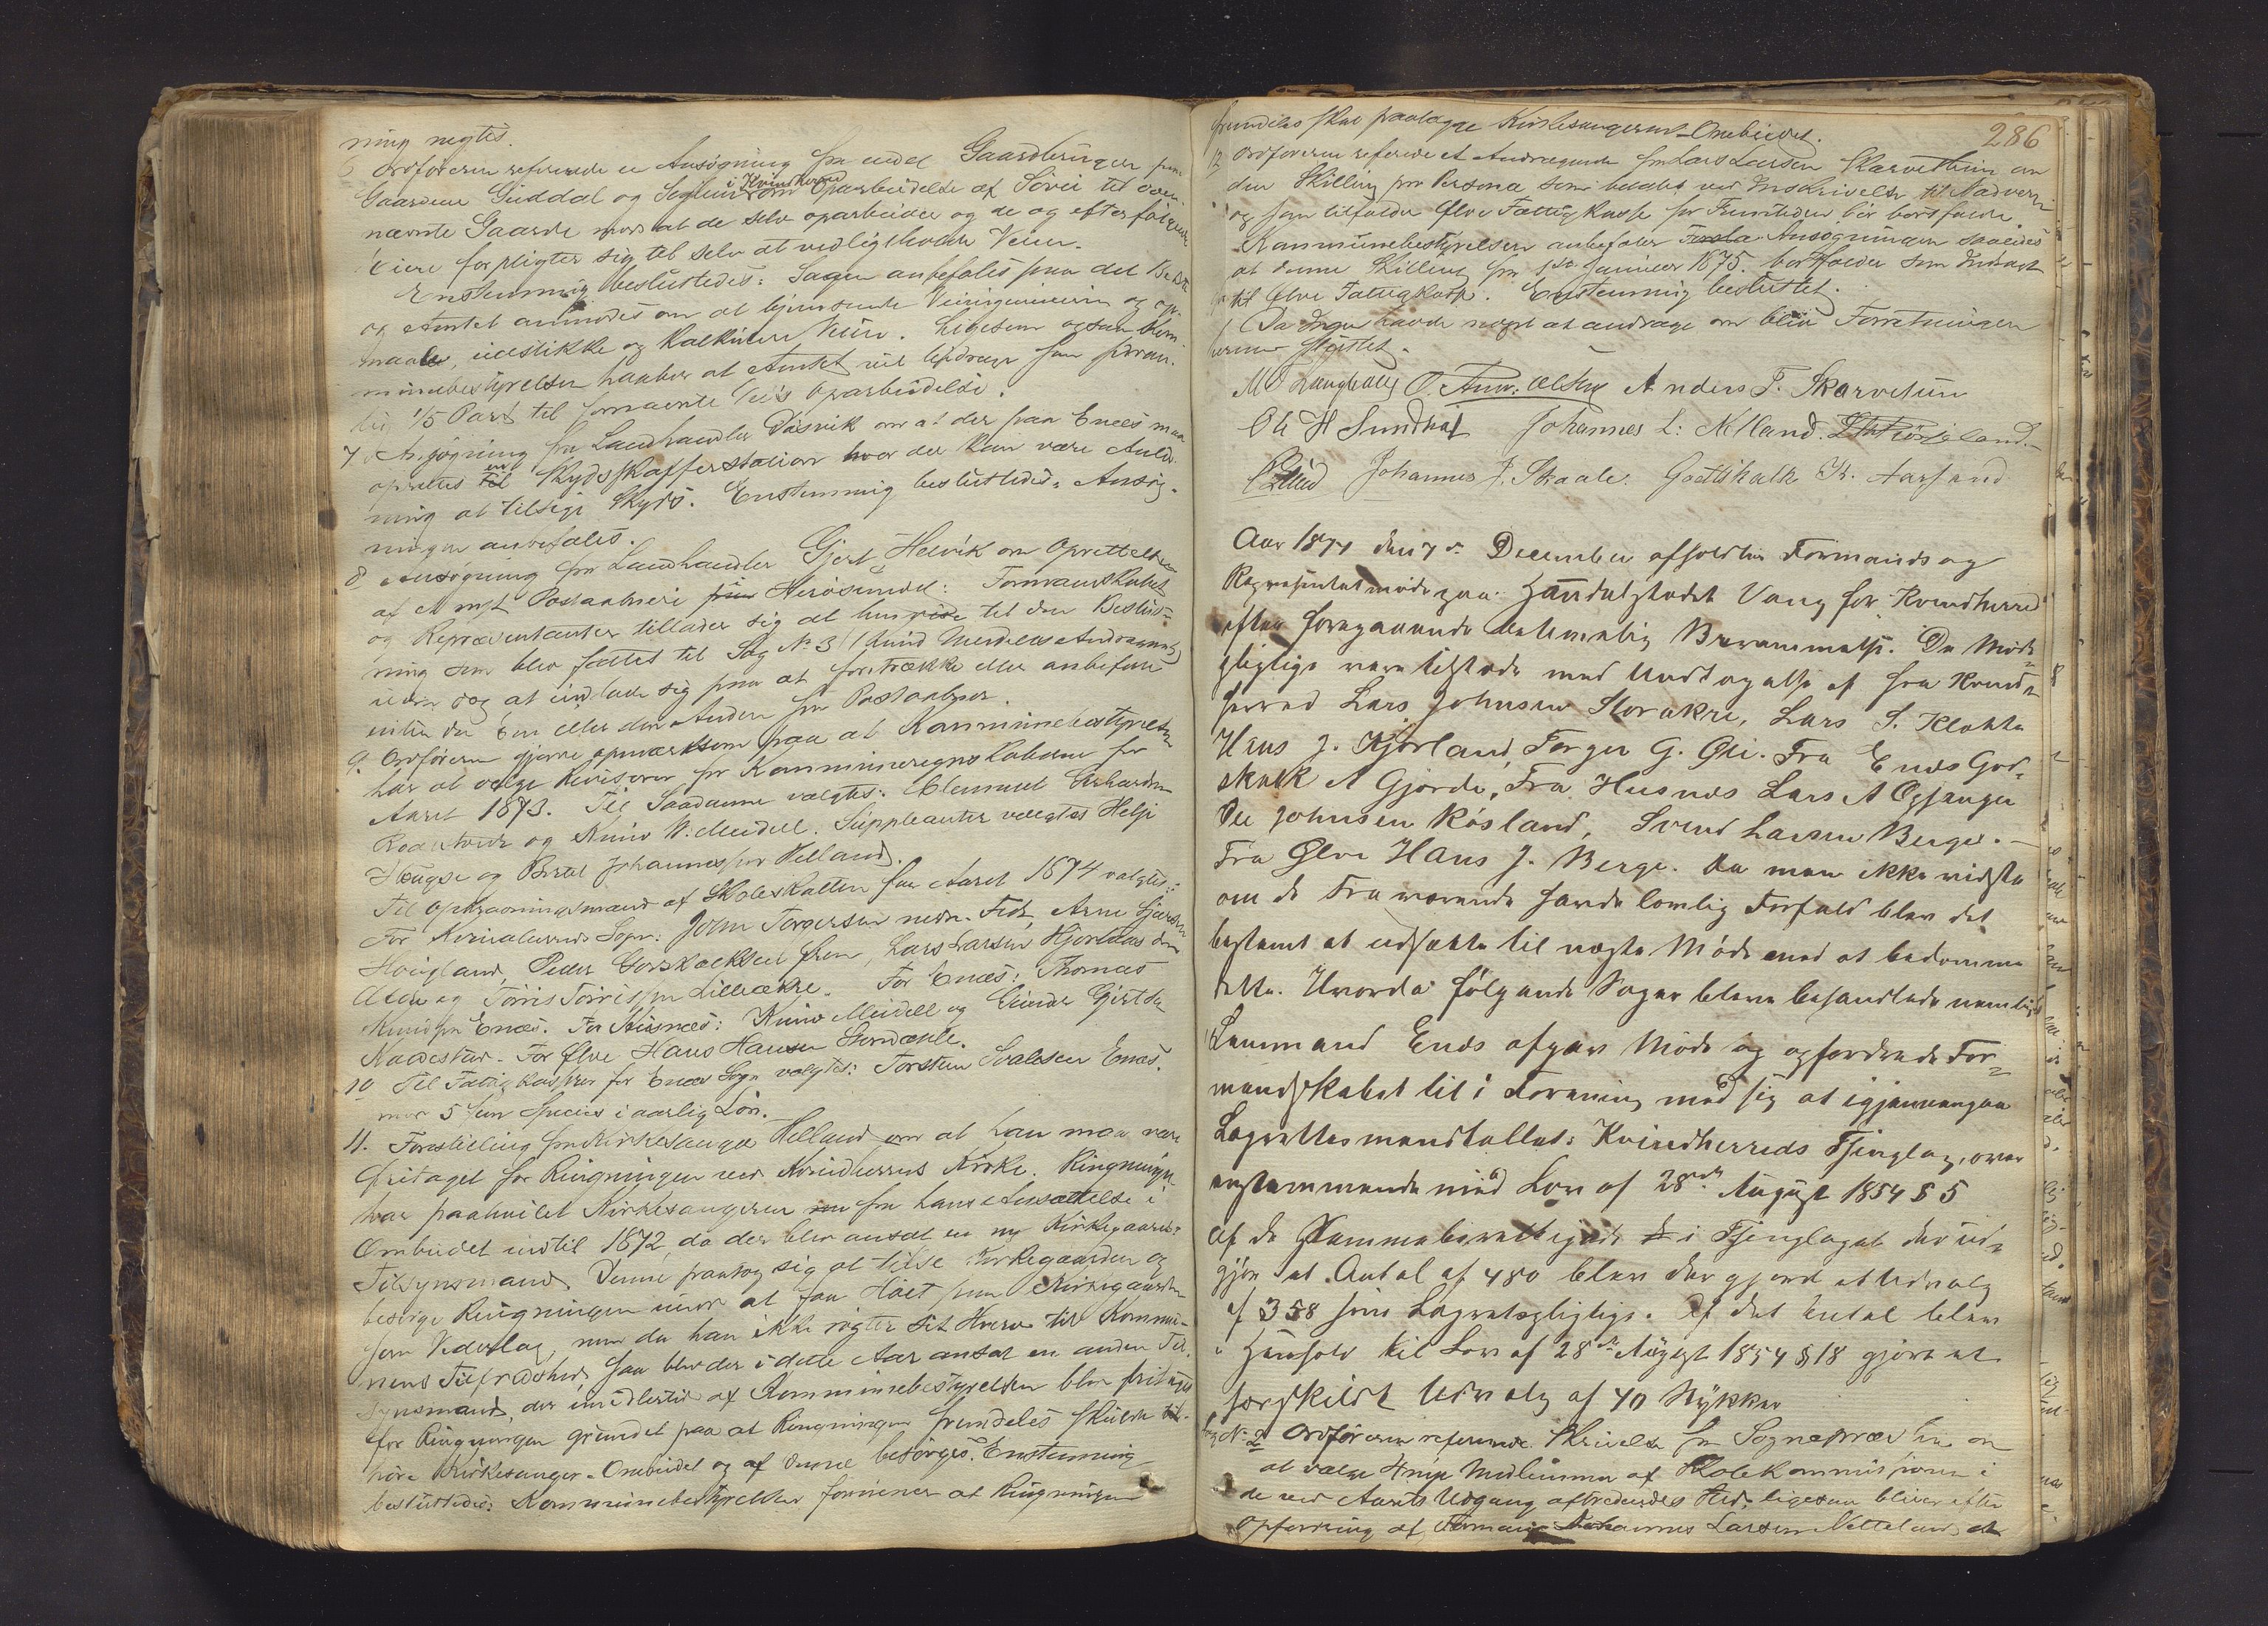 ning negtes.
6 Ordføreren refererede en Ansøgning fra endel Gaardbrugere paa
Gaardene Guddal og Seglem i Kvindherred om Oparbeidelse af Sovei til oven-
nævnte Gaarde mod at de selv oparbeider og de og efterfølgende
Eiere forpligter sig til selv at vedligeholde Veien.
Enstemmig besluttedes: Sagen anbefales paa det Bedste
og Amtet anmodes om at hjemsende Veiingeniøren og op-
maale, udstikke og kalkulere Veien. Ligesom ogsaa Kom-
munebestyrelsen haaber at Amtet vil bidrage
1/5 Part til fornævnte Veis Oparbeidelse.
7. Ansøgning fra Landhandler Døsvik om at der paa Enæs maa
oprettes en Skydsskafferstation hvor der kan være Anled-
ning at tilsige Skyds. Enstemmig besluttedes: Ansøg-
ningen anbefales.
8 Ansøgning fra Landhandler Gjert Helvik om Oprettelse
af et nyt Postaabneri Herøsundet: Formandskabet
og Repræsentanter tillader sig at henvise til den Beslut-
ning som blev fattet til Sag No 3 (Knud Meidells Andragende)
uden dog at indlade sig paa at foretrække eller anbefale
enten den Ene eller den Anden for Postaabner.
9. Ordføreren gjorde opmærksom paa at Kommunebestyrelsen
har at vælge Revisorer for Kommuneregnskaberne for
Aaret 1873. Til Saadanne valgtes: Clemmet Erhardsen
og Knud W. Meidell. Suppleanter valgtes Helje
Haugse og Baard Johannessen Helland.
Til Opkrævningsmænd af Skoleskatten for Aaret 1874 valgtes:
For Kvindherreds Sogn: John Torgersen nedre Fet, Arne
Hougland, Peder Gorskalksen Frem, Lars Larsen Hjortaas
og Tørris Tørrissen Lilleækre. For Enæs: Thomas
Knudsen Enæs. For Husnæs: Knud Meidell og Einar Gjertsen
For Ølve Hans Hansen
10 Til Fattigkasserer for Enæs Sogn valgtes: Torsten Enæs.
mod 5 fem Species i aarlig Løn.
11. Forestilling fra Kirkesanger Helland om at han maa være
fritaget for Ringningen ved Kvindherreds Kirke. Ringningen
har paahvilet Kirkesangeren fra hans Ansættelse i
Ombudet indtil 1872, da der blev ansat en ny Kirkegaards-
Tilsynsmand. Denne paatog sig at tilse Kirkegaarden og
besørge Ringningen imod at faa Høet paa Kirkegaarden
som Vederlag, men da han ikke røgter sit Hverv til Kommu-
nens Tilfredshed, saa blev der i dette Aar ansat en anden Til-
synsmand, der imidlertid af Kommunebestyrelsen blev fritaget
for Ringningen grundet paa at Ringningen fremdeles skulde til-
høre Kirkesanger-Ombudet og af denne besørges. Enstemmig
besluttedes: Kommunebestyrelsen formener at Ringningen
286
fremdeles skal paalægge Kirkesangerens-Ombudet.
12 Ordføreren referede et Andragende fra Lars Larsen Skarvethun om
den Skilling pr Persona som betales ved Inskrivelse til Nadvere
og som tilfalder Ølve Fattigkasse for Fremtiden bør bortfalde.
Kommunebestyrelsen anbefaler Ansøgningen saaledes
at denne Skilling fra 1ste Januar 1875. bortfalder som Indtægt
til Ølve Fattigkasse. Enstemmig besluttet.
Da Ingen havde noget at andrage om blev Forretningen
hermed sluttet.
Anders T. Skarvetun
Ole H Sundhal Johannes L: Netland.
Johannes J. Skaale. Gaattskalk Kr. Aarsand
Aar 1874 den 7de December afholdtes Formands og
Repræsentatmøde paa Handelstedet Vang for Kvindherred
efter foregaaende Bevammelse. De Møde-
pligtige vare tilstæde med Undtagelse af fra Kvind-
herred Lars Johnsen Storakre, Lars S. Klokke
Hans J. Kjørland, Torger G. Øie. Fra Enæs God-
skalk A Gjerde, Fra Husnæs Lars A Opsanger
Ole Johnsen Røsland, Svend Larsen Berge. —
Fra Ølve Hans J. Berge. Da man ikke vidste
om de Fraværende havde lovlig Forfald blev det
bestemt at udsætte til næste Møde med at bedømme
dette. Hvorda følgende Sager bleve behandlede nemlig:
Lensmand Enæs afgav Møde og opfordrede For-
mandskabet til i Forening med sig at igjennemgaa
Lagrettesmandtallet: Kvindherreds Thinglag, over
enstemmende med Lov af 28de August 1854 § 5
af de Stemmeberettigede i Thinglaget der ud-
gjør et Antal af 480 blev der gjord et Udvalg
af 358 som Lagretspligtige. Af det Antal blev
i Henhold til Lov af 28de August 1854 § 18 gjort et
særskildt Udvalg af 40 Stykker
Sag No 2 Ordføreren refererede Skrivelse fra Sognepræsten om
at vælge 4 nye Medlemmer af Skolekommissionen i
de ved Aarets Udgang aftrædendes Sted, ligesaa bliver efter
Opfordring af Formand Johannes Larsen Netteland at